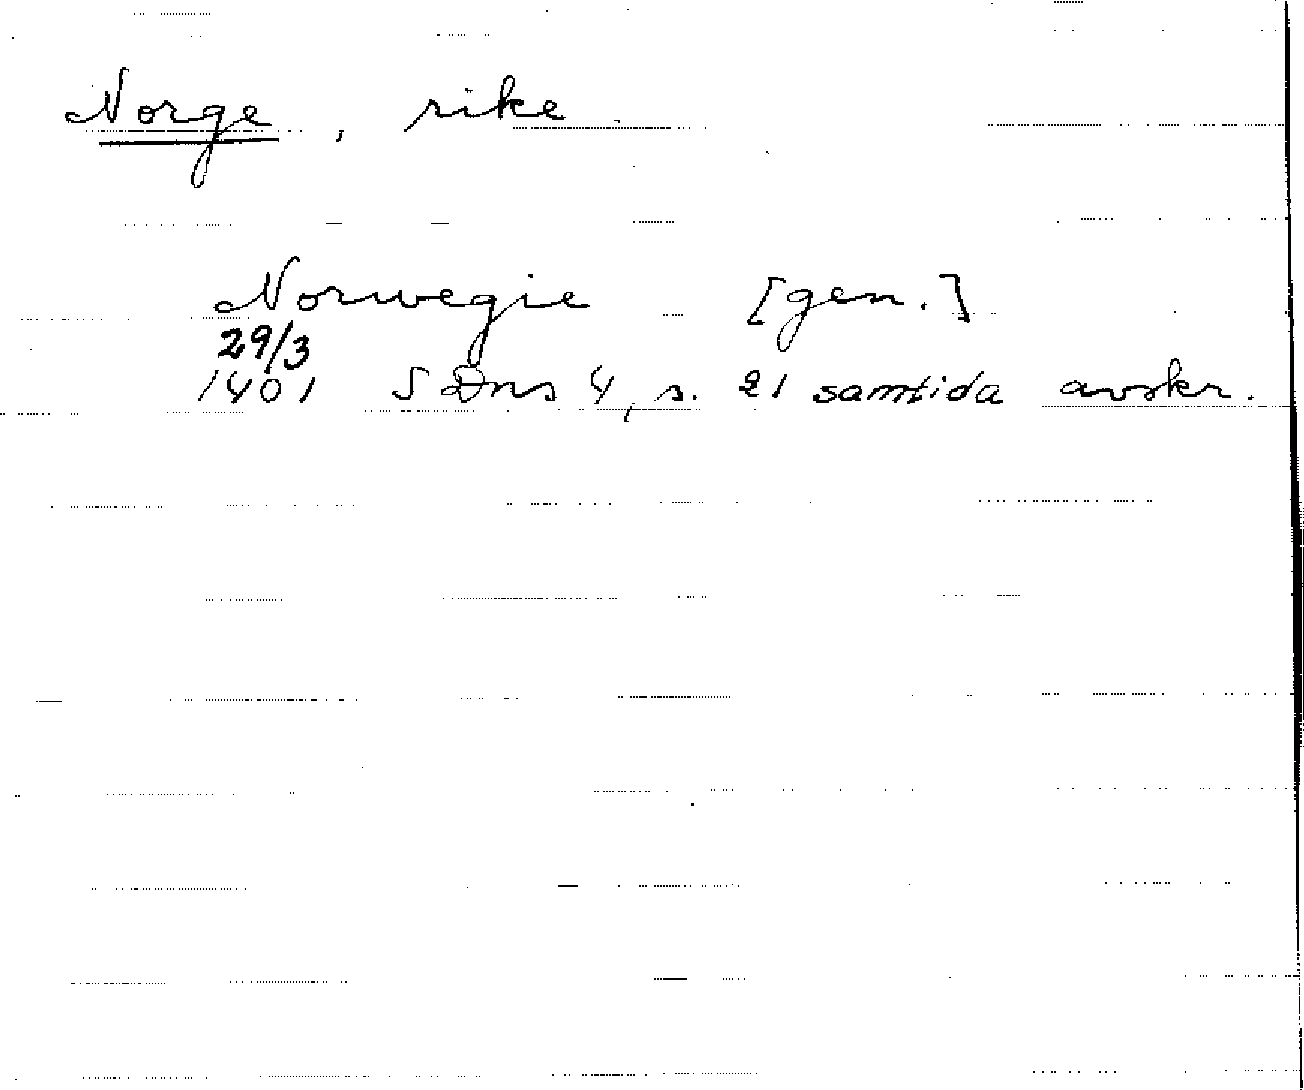 Norge, rike
Norwegie [gen.]
29/3
1401 SDns 4, s. 21 samtida avskr.